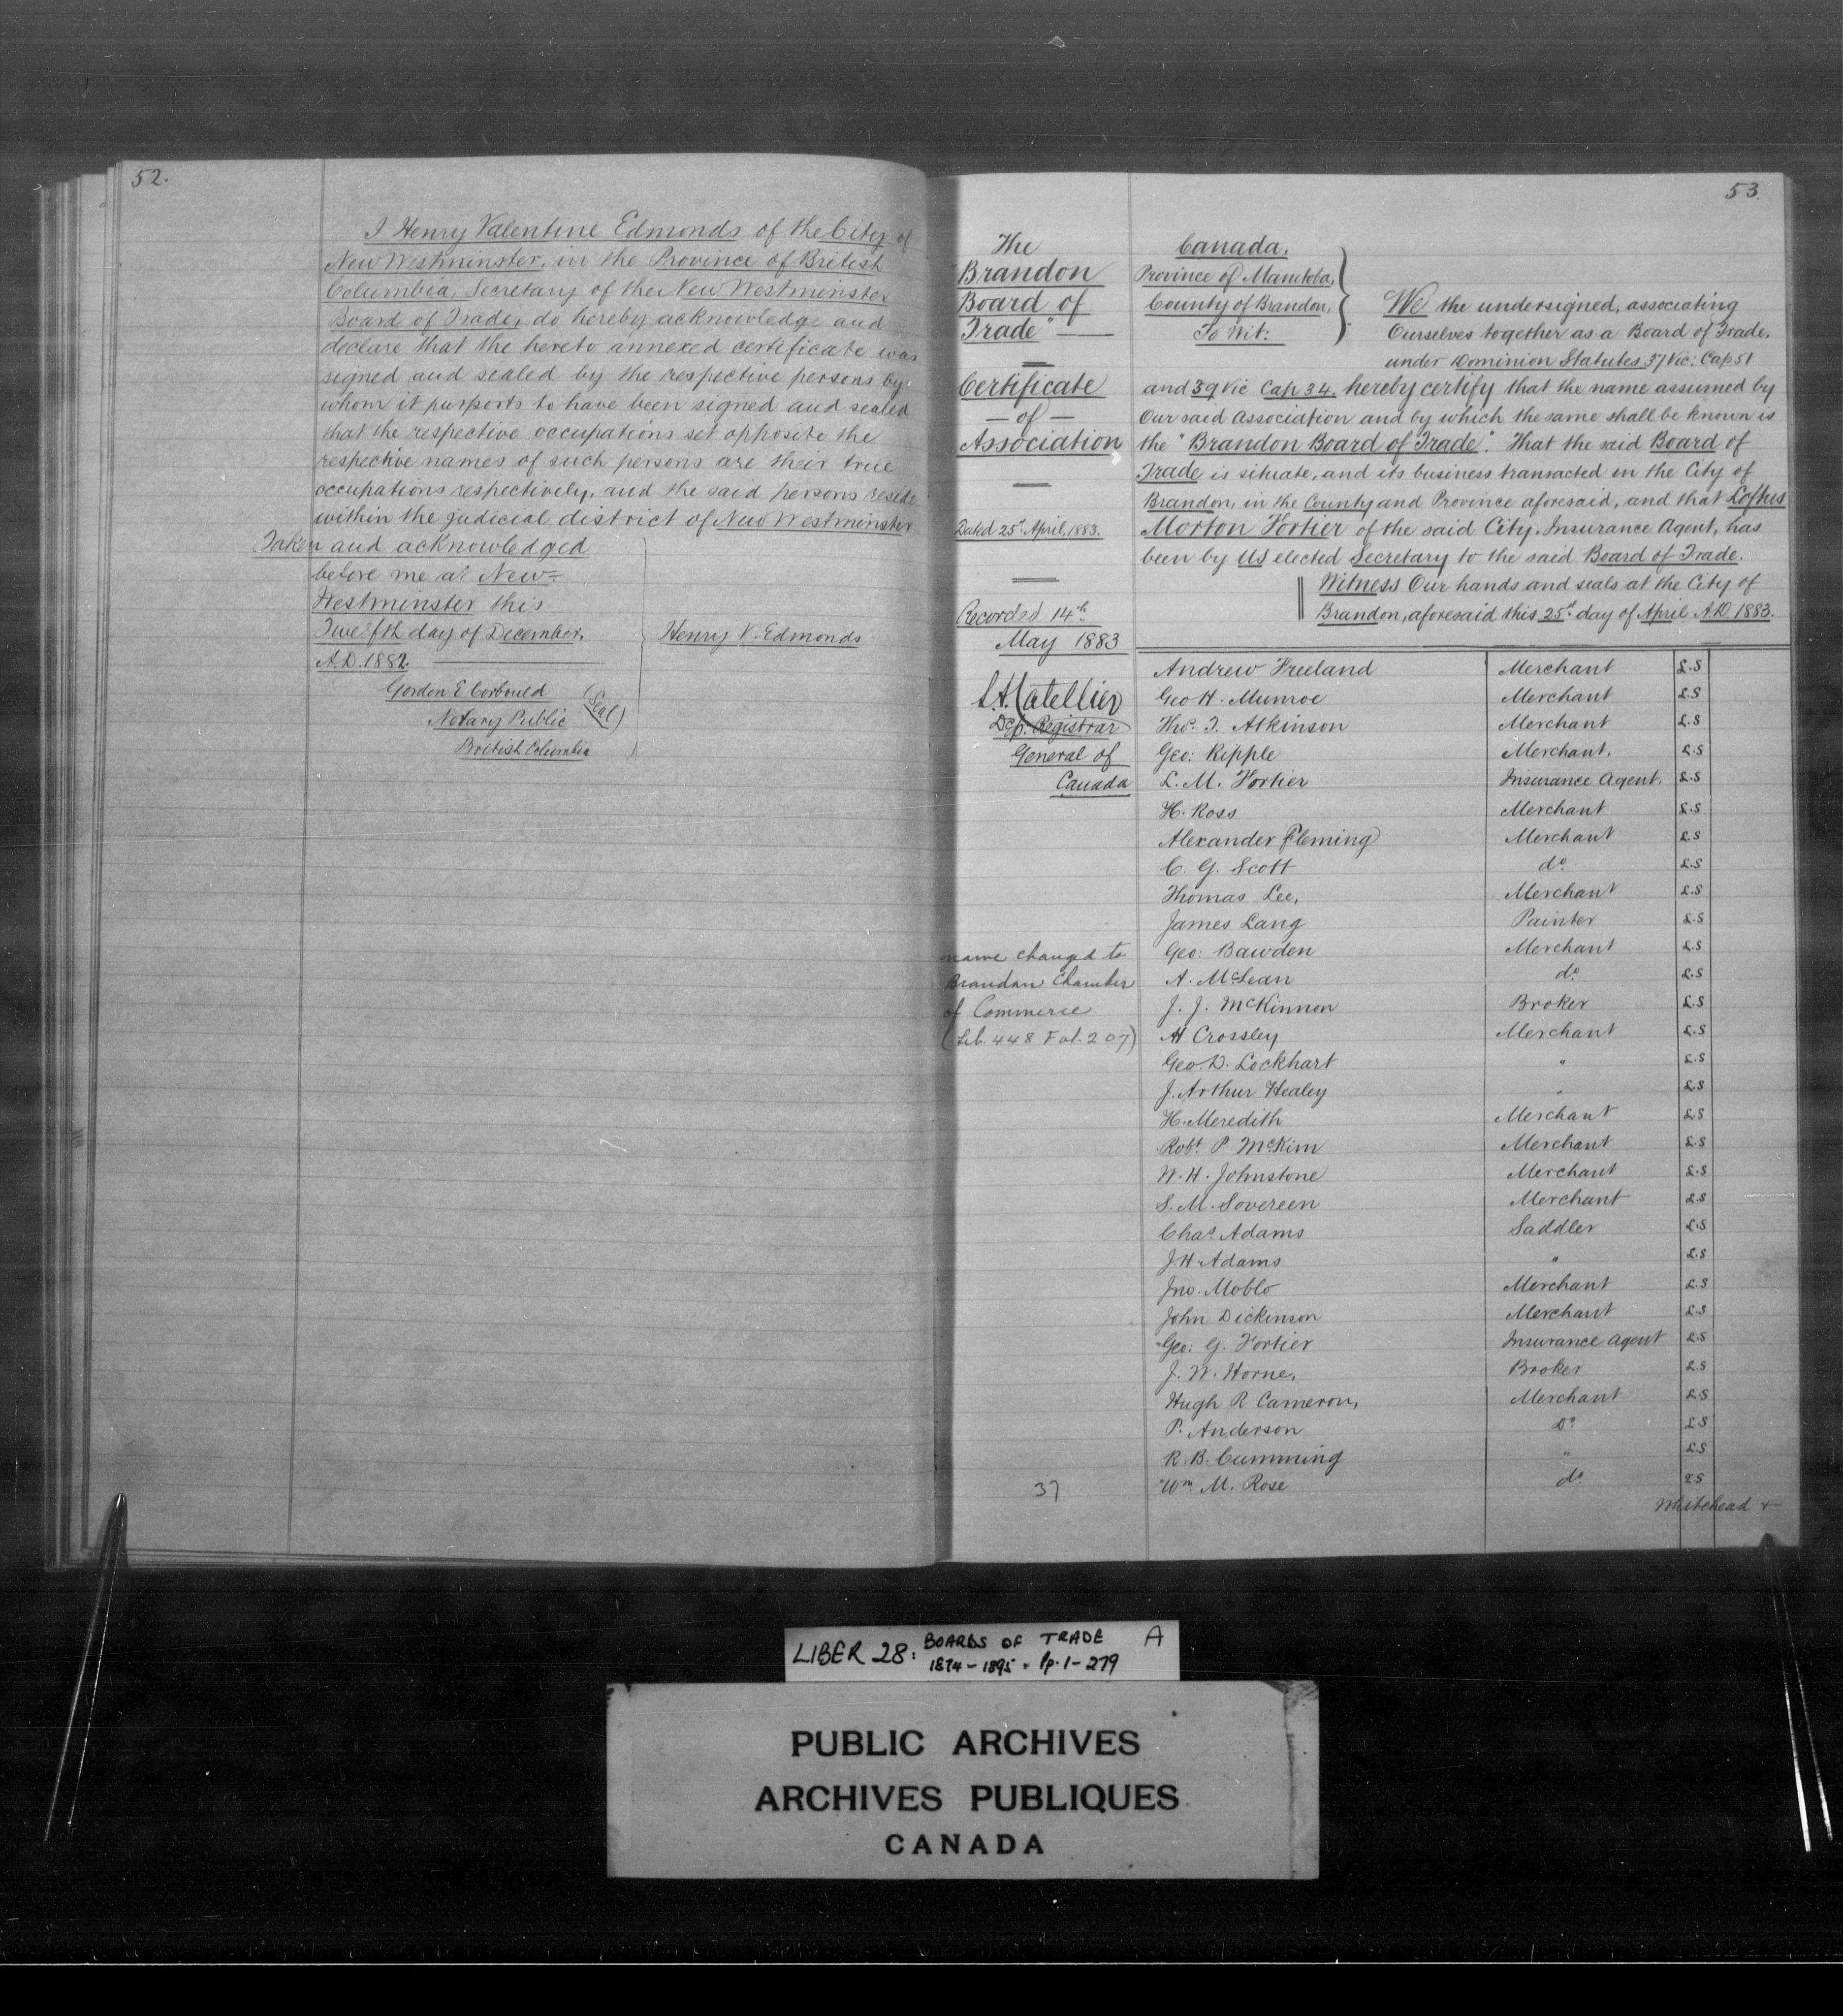 52.
I Henry Valentine Edmonds of the City of
New Westminster, in the Province of British
Columbia, Secretary of the New Westminster
Board of Trade, do hereby acknowledge and
declare that the hereto annexed certificate was
signed and sealed by the respective persons by
whom it purports to have been signed and sealed
that the respective occupations set opposite the
respective names of such persons are their true
occupations respectively, and the said persons reside
within the judicial district of New Westminster
Taken and acknowledged
before me at New-
Westminster this
Twelfth day of December,
A.D. 1882.
Henry V. Edmonds
Gordon E Corbould
(Seal)
Notary Public
British Columbia
53
The
Brandon
Board of
Trade"
Certificate
— of —
Association
Dated 25th April, 1883.
Recorded 14th
May 1883
Dep. Registrar
General of
Canada
name changed to
Brandon Chamber
of Commerce
(Lib. 448 Fol. 207)
37
Canada.
Province of Manitoba,
County of Brandon,
To Wit:
We the undersigned, associating
Ourselves together as a Board of Trade,
under Dominion Statutes 37 Vic: Cap 51
and 39 Vic Cap 34, hereby certify that the name assumed by
Our said Association and by which the same shall be known is
the "Brandon Board of Trade". That the said Board of
Trade is situate, and its business transacted in the City of
Brandon, in the County and Province aforesaid, and that Loftus
Morton Fortier of the said City, Insurance Agent, has
been by us elected Secretary to the said Board of Trade.
Witness Our hands and seals at the City of
Brandon, aforesaid this 25th day of April A.D. 1883.
Andrew Freeland Merchant L.S
Geo H. Munroe Merchant L.S
Thos. T. Atkinson Merchant L.S
Geo: Kipple Merchant. L.S
L. M. Fortier Insurance Agent. L.S
H. Ross Merchant L.S
Alexander Fleming Merchant L.S
C. G. Scott do L.S
Thomas Lee, Merchant L.S
James Lang Painter L.S
Geo: Bawden Merchant L.S
A. McLean do L.S
J. J. McKinnon Broker L.S
H Crossley Merchant L.S
Geo. D. Lockhart " L.S
J. Arthur Healey " L.S
H. Meredith Merchant L.S
Robt P. McKim Merchant L.S
W. H. Johnstone Merchant L.S
S. M. Sovereen Merchant L.S
Chas Adams Saddler L.S
J. H. Adams " L.S
Jno. Moblo Merchant L.S
John Dickinson Merchant L.S
Geo: G. Fortier Insurance Agent L.S
J. W. Horne, Broker L.S
Hugh R Cameron, Merchant L.S
P. Anderson Do L.S
R. B. Cumming " L.S
Wm. M. Rose do L.S
Whitehead &
LIBER 28: BOARDS OF TRADE A
1874-1895 - Pp. 1-279
PUBLIC ARCHIVES
ARCHIVES PUBLIQUES
CANADA